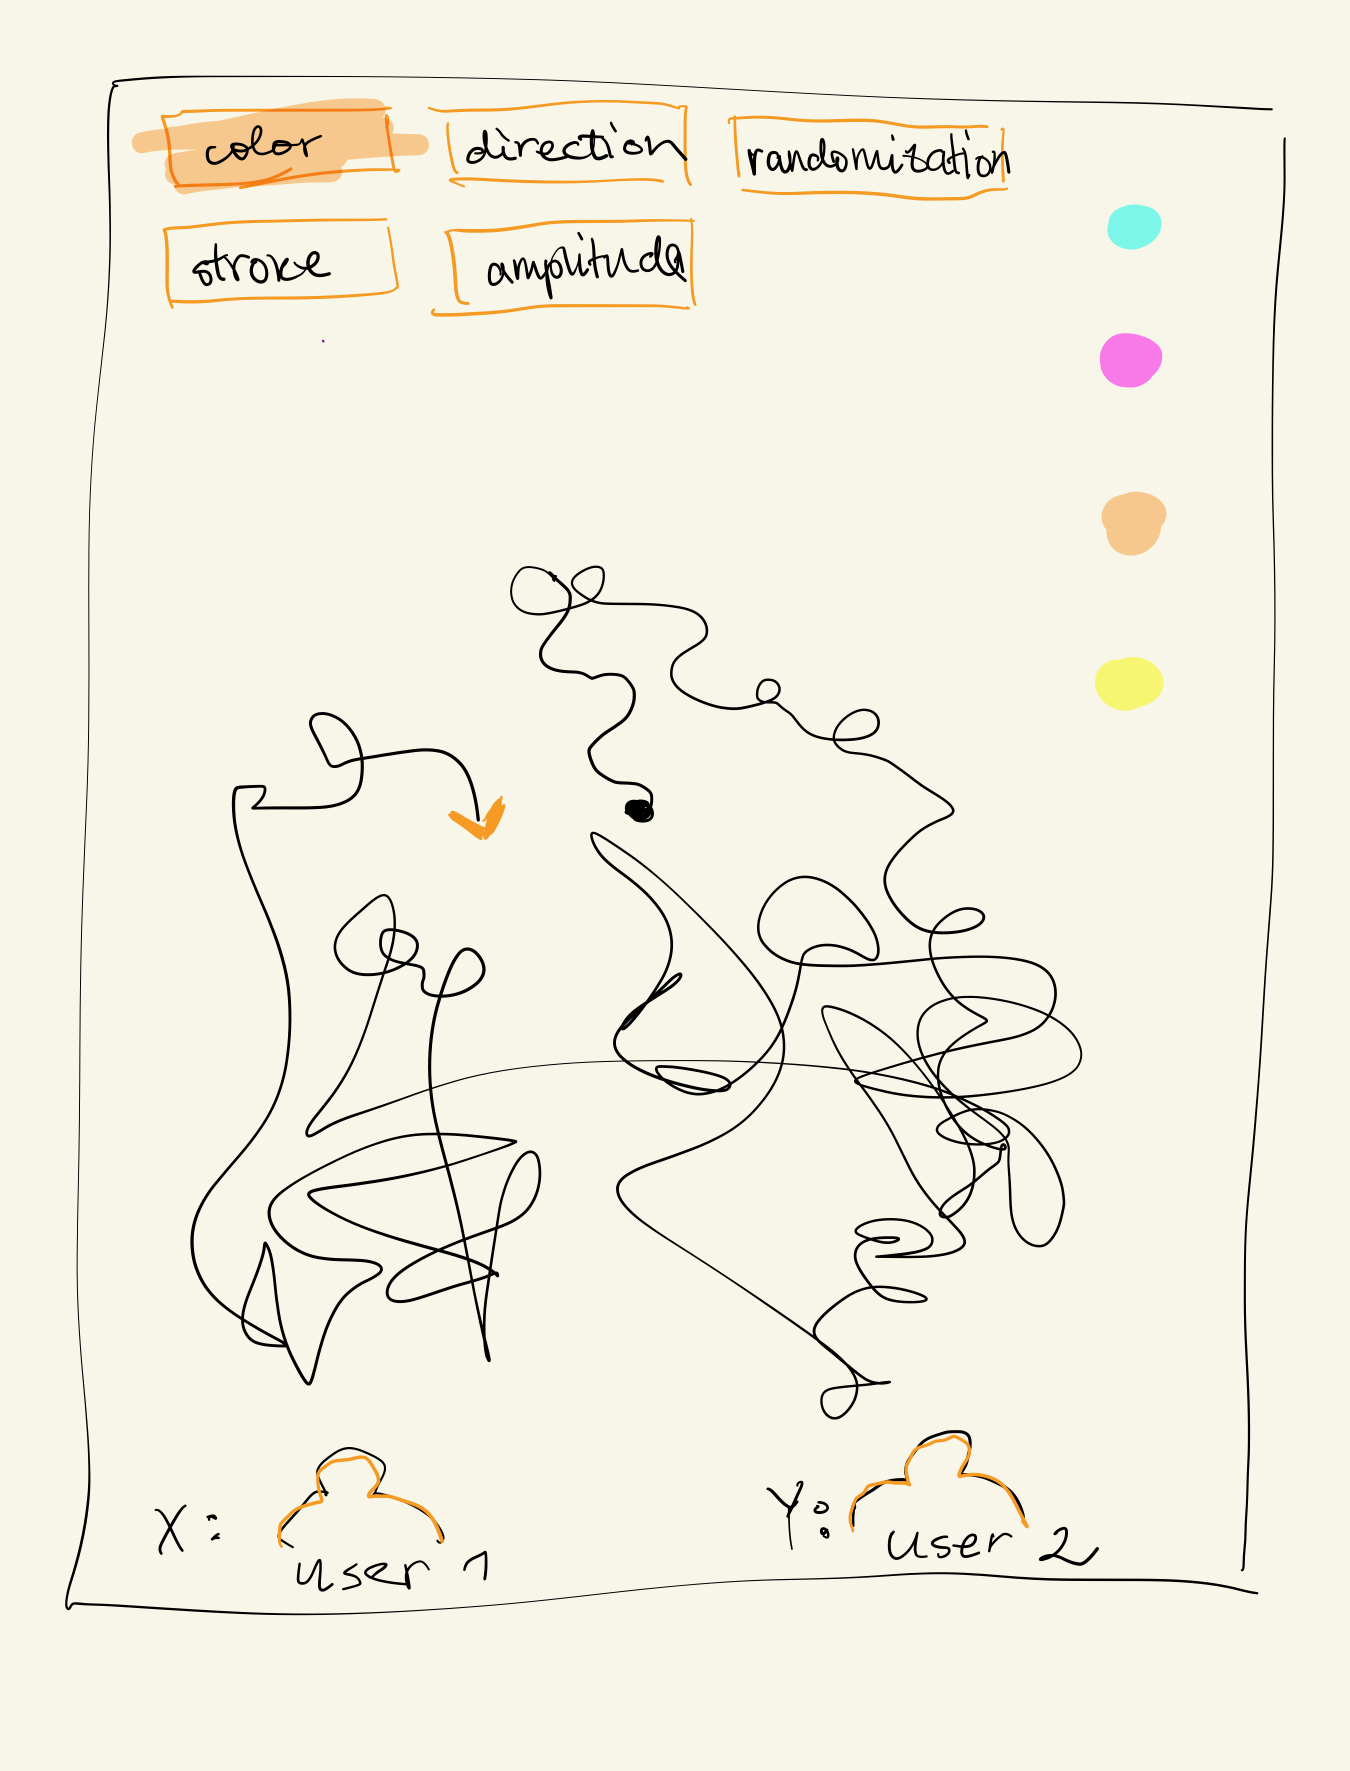 color direction randomization
stroke amplitude
X: Y:
user 1 user 2